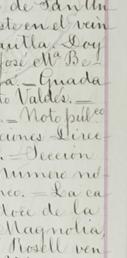 de San In
este en el vein
quitla. Doy
José Ma. Be
ra. Guada
to Valdés. =
= Noto públco
ciones Direc
. = Sección
Número no
rco. = La ca
doce de la
Magnolia,
Rosell ven